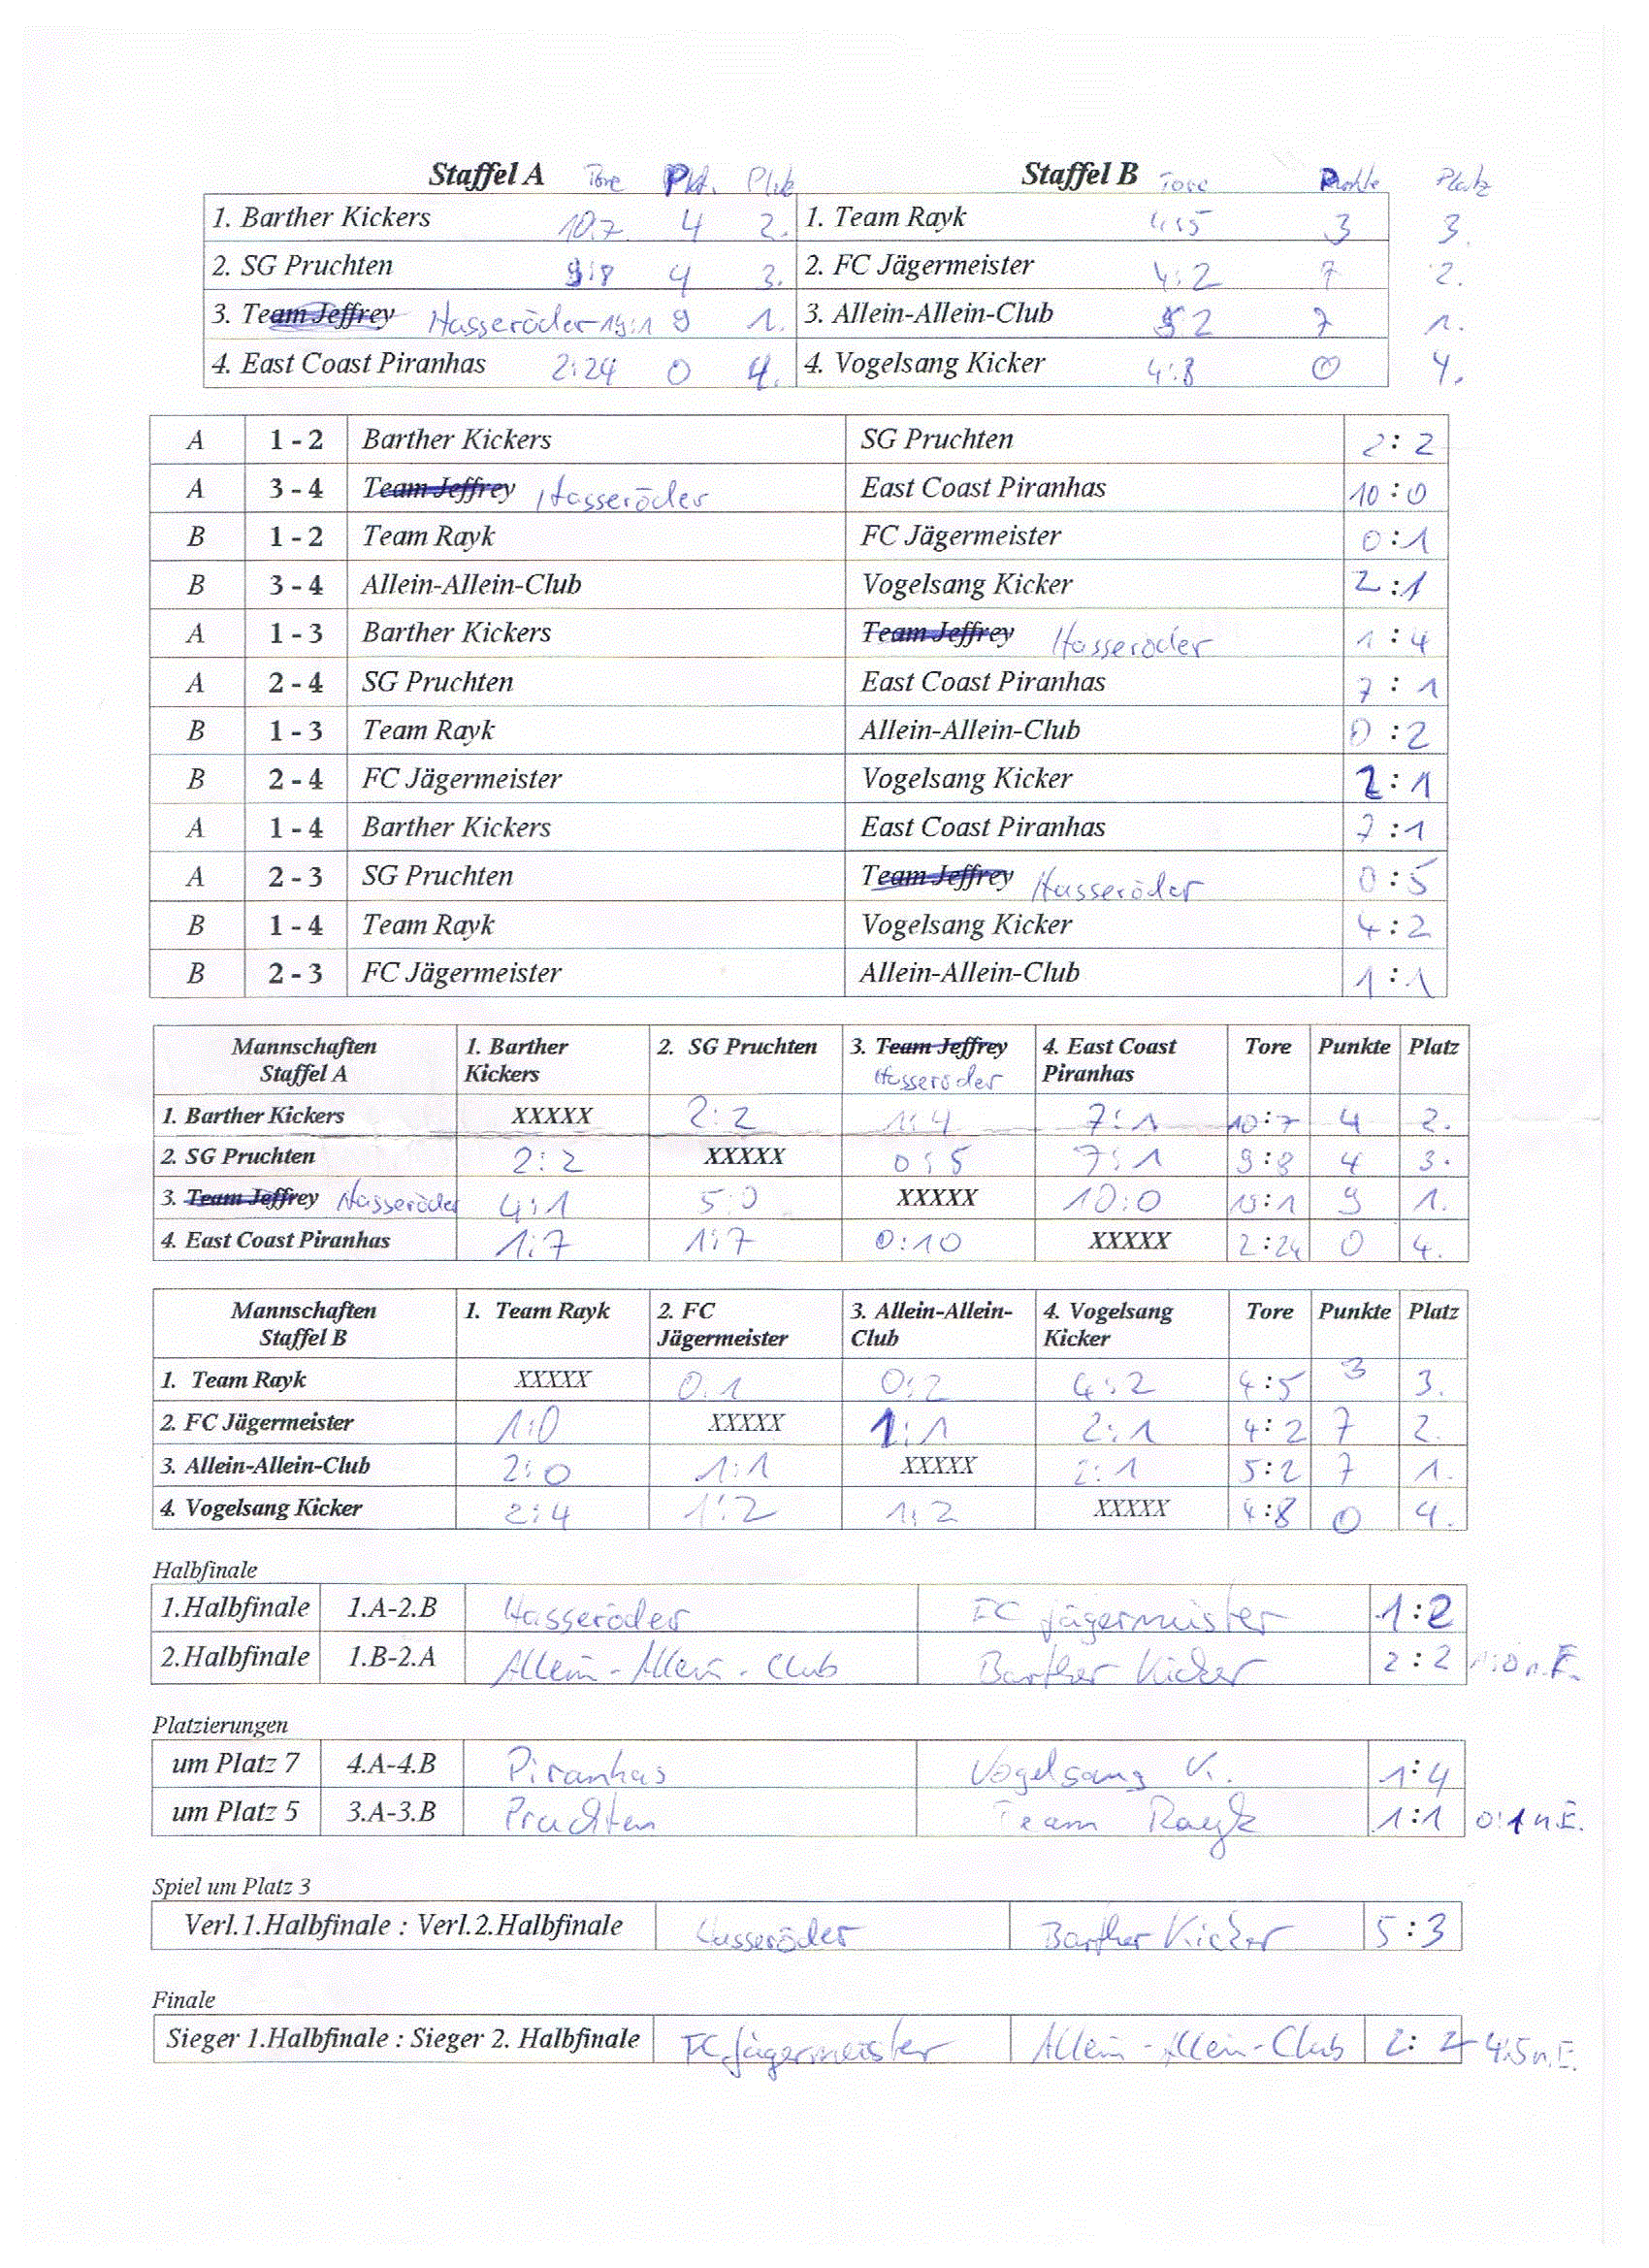 Staffel A Tore Pkt. Platz Staffel B Tore Punkte Platz
1. Barther Kickers 10:7 4 2. 1. Team Rayk 4:5 3 3.
2. SG Pruchten 9:8 4 3. 2. FC Jägermeister 4:2 7 2.
3. Team Jeffrey Hasseröder 19:1 9 1. 3. Allein-Allein-Club 5 2 7 1.
4. East Coast Piranhas 2:24 0 4. 4. Vogelsang Kicker 4:8 0 4.
A 1 - 2 Barther Kickers SG Pruchten 2:2
A 3 - 4 Team Jeffrey Hasseröder East Coast Piranhas 10:0
B 1 - 2 Team Rayk FC Jägermeister 0:1
B 3 - 4 Allein-Allein-Club Vogelsang Kicker 2:1
A 1 - 3 Barther Kickers Team Jeffrey Hasseröder 1:4
A 2 - 4 SG Pruchten East Coast Piranhas 7:1
B 1 - 3 Team Rayk Allein-Allein-Club 0:2
B 2 - 4 FC Jägermeister Vogelsang Kicker 2:1
A 1 - 4 Barther Kickers East Coast Piranhas 7:1
A 2 - 3 SG Pruchten Team Jeffrey Hasseröder 0:5
B 1 - 4 Team Rayk Vogelsang Kicker 4:2
B 2 - 3 FC Jägermeister Allein-Allein-Club 1:1
Mannschaften 1. Barther 2. SG Pruchten 3. Team Jeffrey 4. East Coast Tore Punkte Platz
Staffel A Kickers Hasseröder Piranhas
1. Barther Kickers XXXXX 2:2 1:4 7:1 10:7 4 2.
2. SG Pruchten 2:2 XXXXX 0:5 7:1 9:8 4 3.
3. Team Jeffrey Hasseröder 4:1 5:0 XXXXX 10:0 19:1 9 1.
4. East Coast Piranhas 1:7 1:7 0:10 XXXXX 2:24 0 4.
Mannschaften 1. Team Rayk 2. FC 3. Allein-Allein- 4. Vogelsang Tore Punkte Platz
Staffel B Jägermeister Club Kicker
1. Team Rayk XXXXX 0:1 0:2 4:2 4:5 3 3.
2. FC Jägermeister 1:0 XXXXX 1:1 2:1 4:2 7 2.
3. Allein-Allein-Club 2:0 1:1 XXXXX 2:1 5:2 7 1.
4. Vogelsang Kicker 2:4 1:2 1:2 XXXXX 4:8 0 4.
Halbfinale
1.Halbfinale 1.A-2.B Hasseröder FC Jägermeister 1:2
2.Halbfinale 1.B-2.A Allein-Allein-Club Barther Kicker 2:2 1:0 n.E.
Platzierungen
um Platz 7 4.A-4.B Piranhas Vogelsang K. 1:4
um Platz 5 3.A-3.B Pruchten Team Rayk 1:1 0:1 n.E.
Spiel um Platz 3
Verl.1.Halbfinale : Verl.2.Halbfinale Hasseröder Barther Kicker 5:3
Finale
Sieger 1.Halbfinale : Sieger 2. Halbfinale FC Jägermeister Allein-Allein-Club 2:2 4:5 n.E.